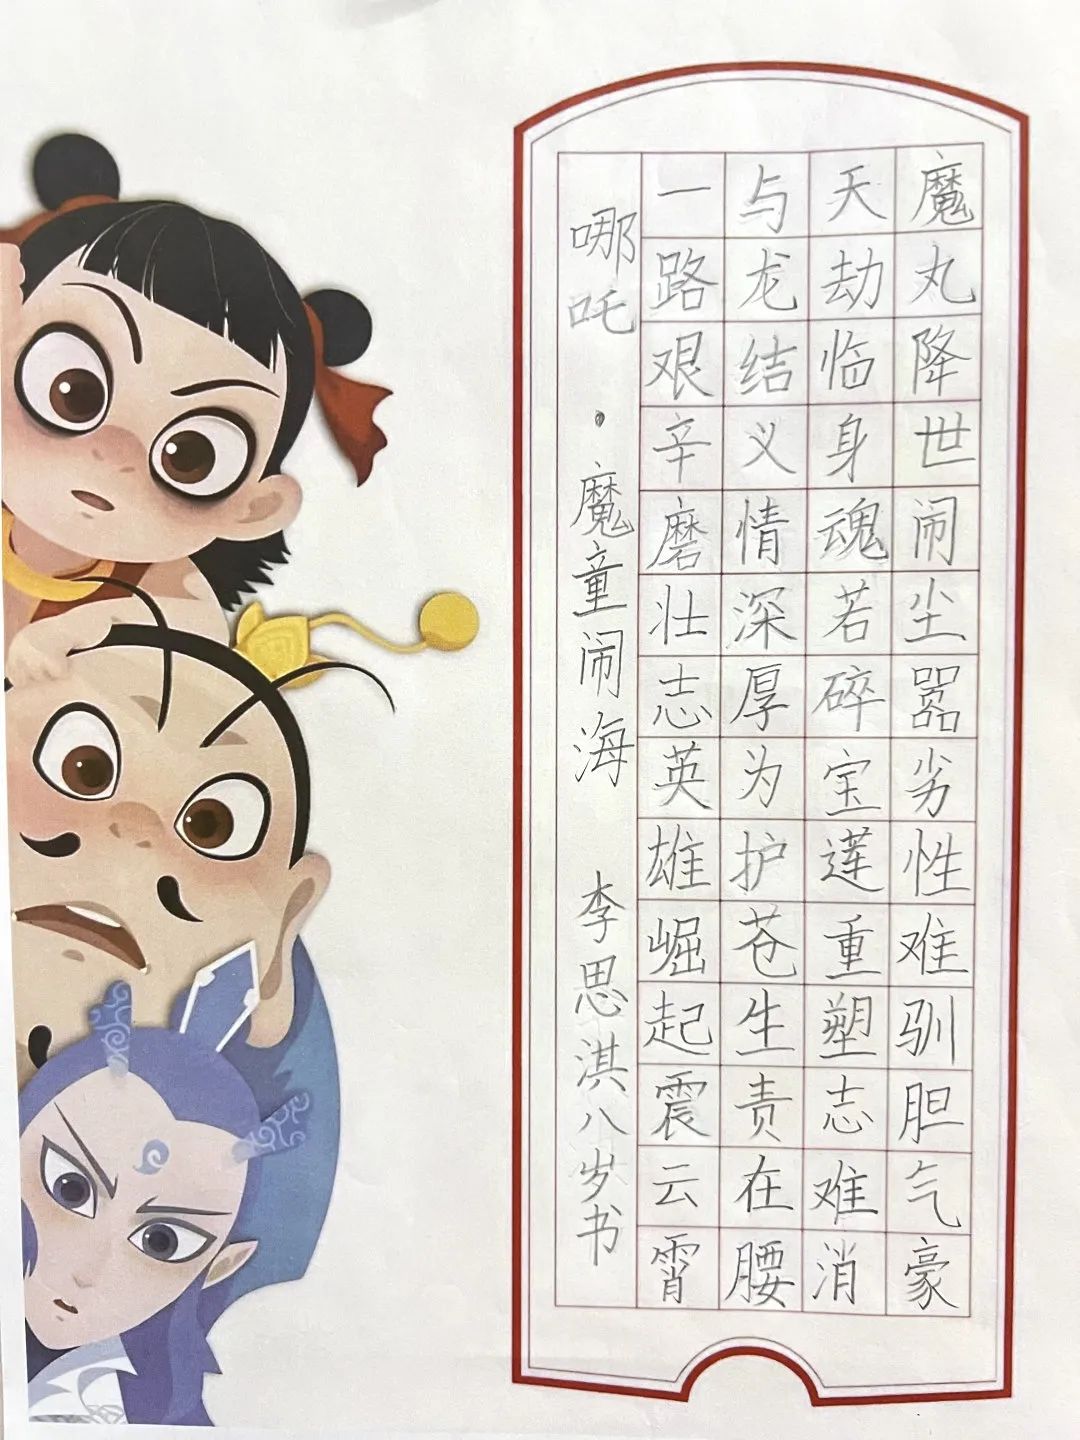 魔丸降世闹尘嚣劣性难驯胆气豪
天劫临身魂若碎宝莲重塑志难消
与龙结义情深厚为护苍生责在腰
一路艰辛磨壮志英雄崛起震云霄
哪吒·魔童闹海 李思淇八岁书